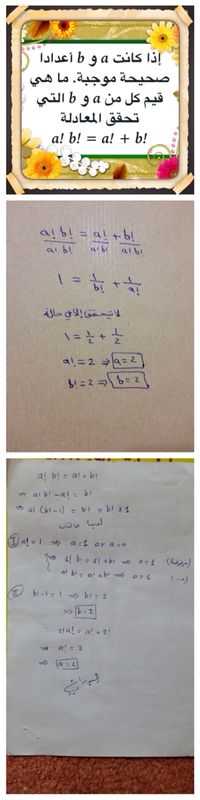 إذا كانت a و b أعدادا
صحيحة موجبة. ما هي
قيم كل من a و b التي
تحقق المعادلة
a! b! = a! + b!
a! b! / a! b! = a! / a! b! + b! / a! b!
1 = 1/b! + 1/a!
لا تتحقق إلا في حالة
1 = 1/2 + 1/2
a! = 2 ⇒ a = 2
b! = 2 ⇒ b = 2
a! b! = a! + b!
⇒ a! b! - a! = b!
⇒ a! (b! - 1) = b! = b! × 1
لدينا حالتان
① a! = 1 ⇒ a = 1 or a = 0
⇒ 1! b! = 1! + b! ⇒ 0 = 1 (مرفوضة)
0! b! = 0! + b! ⇒ 0 = 1
② b! - 1 = 1 ⇒ b! = 2
⇒ b = 2
∴ 2! a! = a! + 2!
⇒ a! = 2
⇒ a = 2